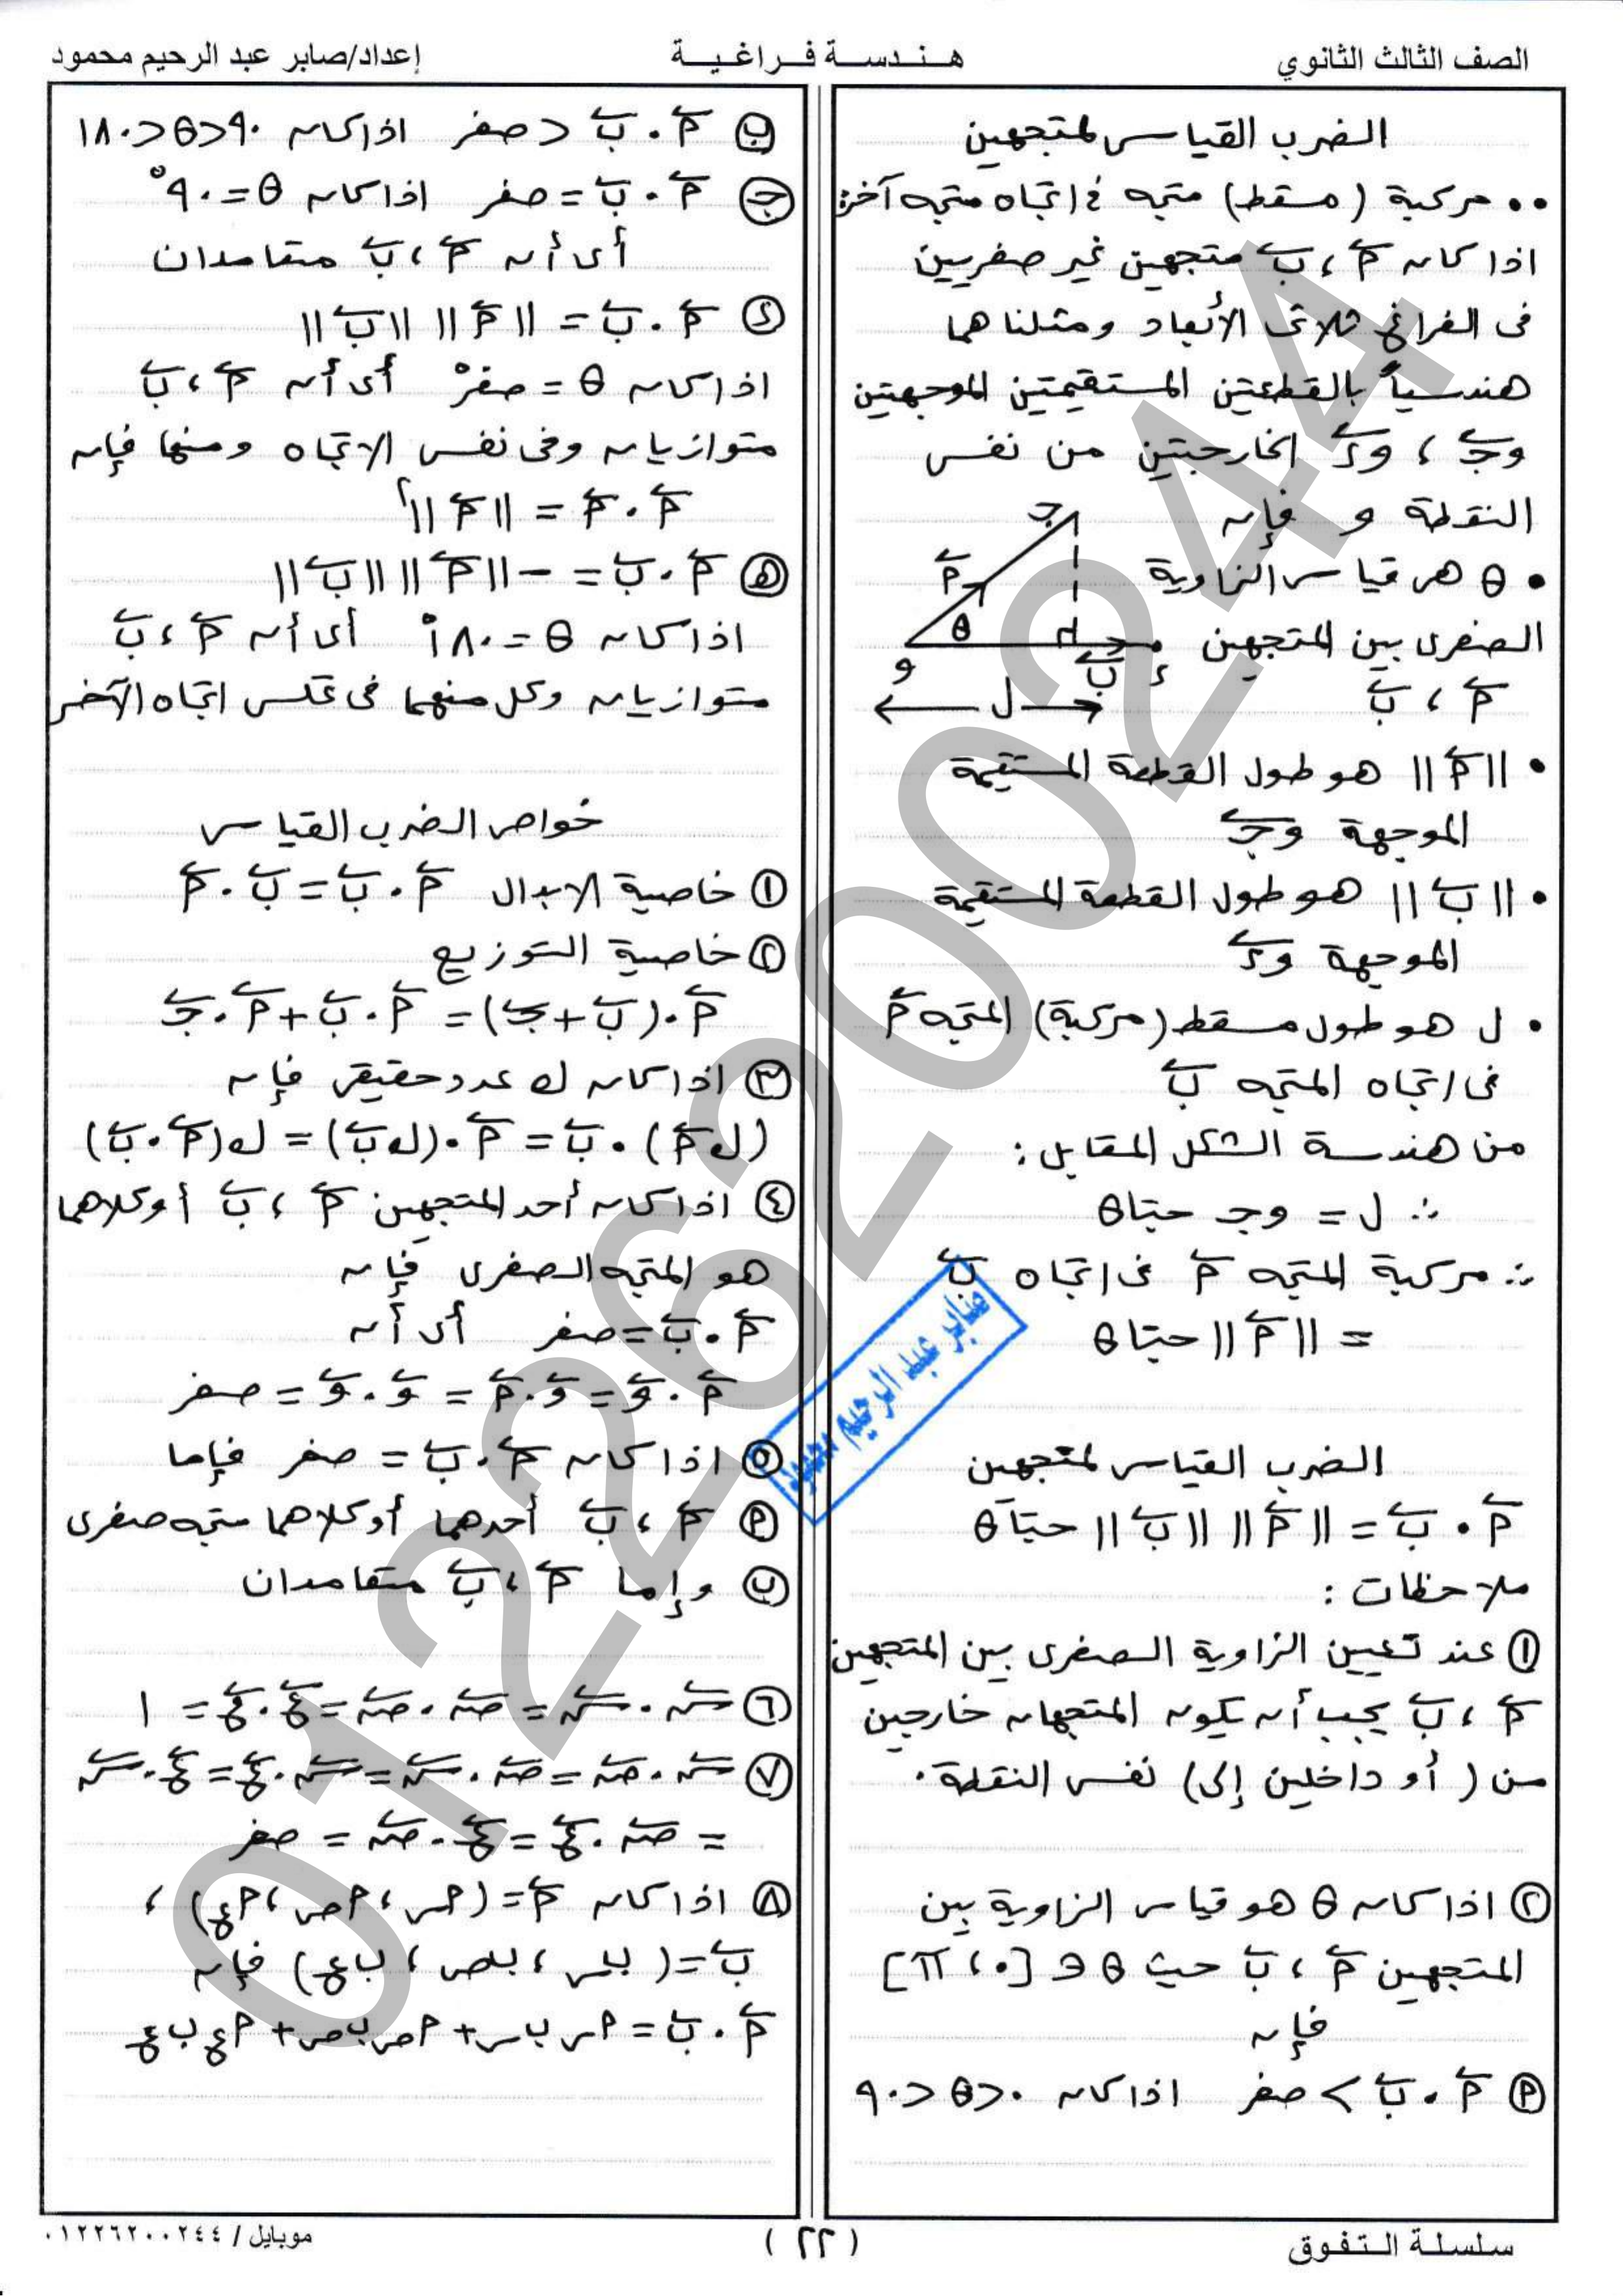 الصف الثالث الثانوي
هندسة فراغية
إعداد/صابر عبد الرحيم محمود
الضرب القياسى لمتجهين
•• مركبة (مسقط) متجه فى اتجاه متجه آخر:
اذا كان أَ ، بَ متجهين غير صفريين
فى الفراغ ثلاثى الأبعاد ومثلناهما
هندسياً بالقطعتين المستقيمتين الموجهتين
وجَ ، وءَ الخارجتين من نفس
النقطة و فإن
• θ هى قياس الزاوية
الصغرى بين المتجهين
أَ ، بَ
جـ
أَ
θ
و
بَ
ء
ل
• ||أَ|| هو طول القطعة المستقيمة
الموجهة وجَ
• ||بَ|| هو طول القطعة المستقيمة
الموجهة وءَ
• ل هو طول مسقط (مركبة) المتجه أَ
فى اتجاه المتجه بَ
من هندسة الشكل المقابل:
∴ ل = وجـ حتاθ
∴ مركبة المتجه أَ فى اتجاه بَ
= ||أَ|| حتاθ
الضرب القياسى لمتجهين
أَ . بَ = ||أَ|| ||بَ|| حتاθ
ملاحظات :
① عند تعيين الزاوية الصغرى بين المتجهين
أَ ، بَ يجب أن يكون المتجهان خارجين
من (أو داخلين إلى) نفس النقطة .
② اذا كان θ هو قياس الزاوية بين
المتجهين أَ ، بَ حيث θ ∈ [٠ ، π]
فإن
Ⓟ أَ . بَ > صفر اذا كان ٠<θ<٩٠
ⓑ أَ . بَ < صفر اذا كان ٩٠<θ<١٨٠
ⓙ أَ . بَ = صفر اذا كان θ = ٩٠°
أى أن أَ ، بَ متعامدان
ⓓ أَ . بَ = ||أَ|| ||بَ||
اذا كان θ = صفر° أى أن أَ ، بَ
متوازيان وفى نفس الاتجاه ومنها فإن
أَ . أَ = ||أَ||²
ⓗ أَ . بَ = - ||أَ|| ||بَ||
اذا كان θ = ١٨٠° أى أن أَ ، بَ
متوازيان وكل منهما فى عكس اتجاه الآخر
خواص الضرب القياسى
① خاصية الابدال أَ . بَ = بَ . أَ
② خاصية التوزيع
أَ . (بَ + جَ) = أَ . بَ + أَ . جَ
③ اذا كان ك عدد حقيقى فإن
(ك أَ) . بَ = أَ . (ك بَ) = ك (أَ . بَ)
④ اذا كان أحد المتجهين أَ ، بَ أو كلاهما
هو المتجه الصفرى فإن
أَ . بَ = صفر أى أن
أَ . وَ = وَ . أَ = وَ . وَ = صفر
⑤ اذا كان أَ . بَ = صفر فإما
Ⓟ أَ ، بَ أحدهما أو كلاهما متجه صفرى
ⓑ وإما أَ ، بَ متعامدان
⑥ سَ . سَ = صَ . صَ = عَ . عَ = ١
⑦ سَ . صَ = صَ . سَ = سَ . عَ = عَ . سَ
= صَ . عَ = عَ . صَ = صفر
⑧ اذا كان أَ = (أس ، أص ، أع) ،
بَ = (بس ، بص ، بع) فإن
أَ . بَ = أس بس + أص بص + أع بع
صابر عبد الرحيم محمود
01226200244
سلسلة التفوق
( ٢٢ )
موبايل / ٠١٢٢٦٢٠٠٢٤٤